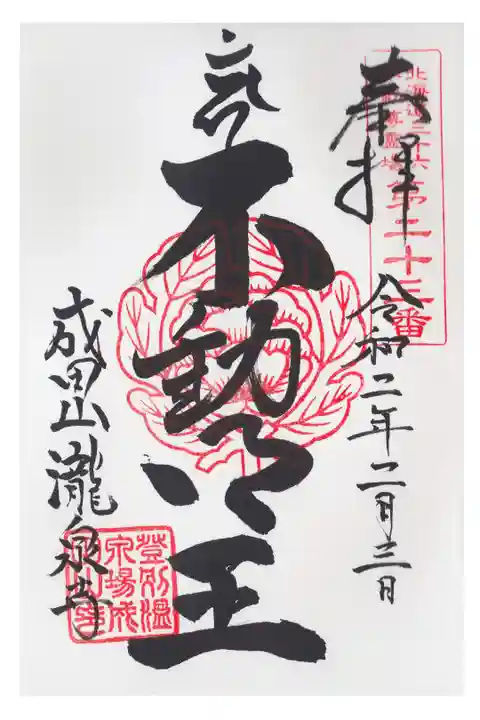 北海道三十六
不動尊霊場
第二十三番
奉拝
令和二年二月三日
不動明王
成田山瀧泉寺
登別温
泉場成